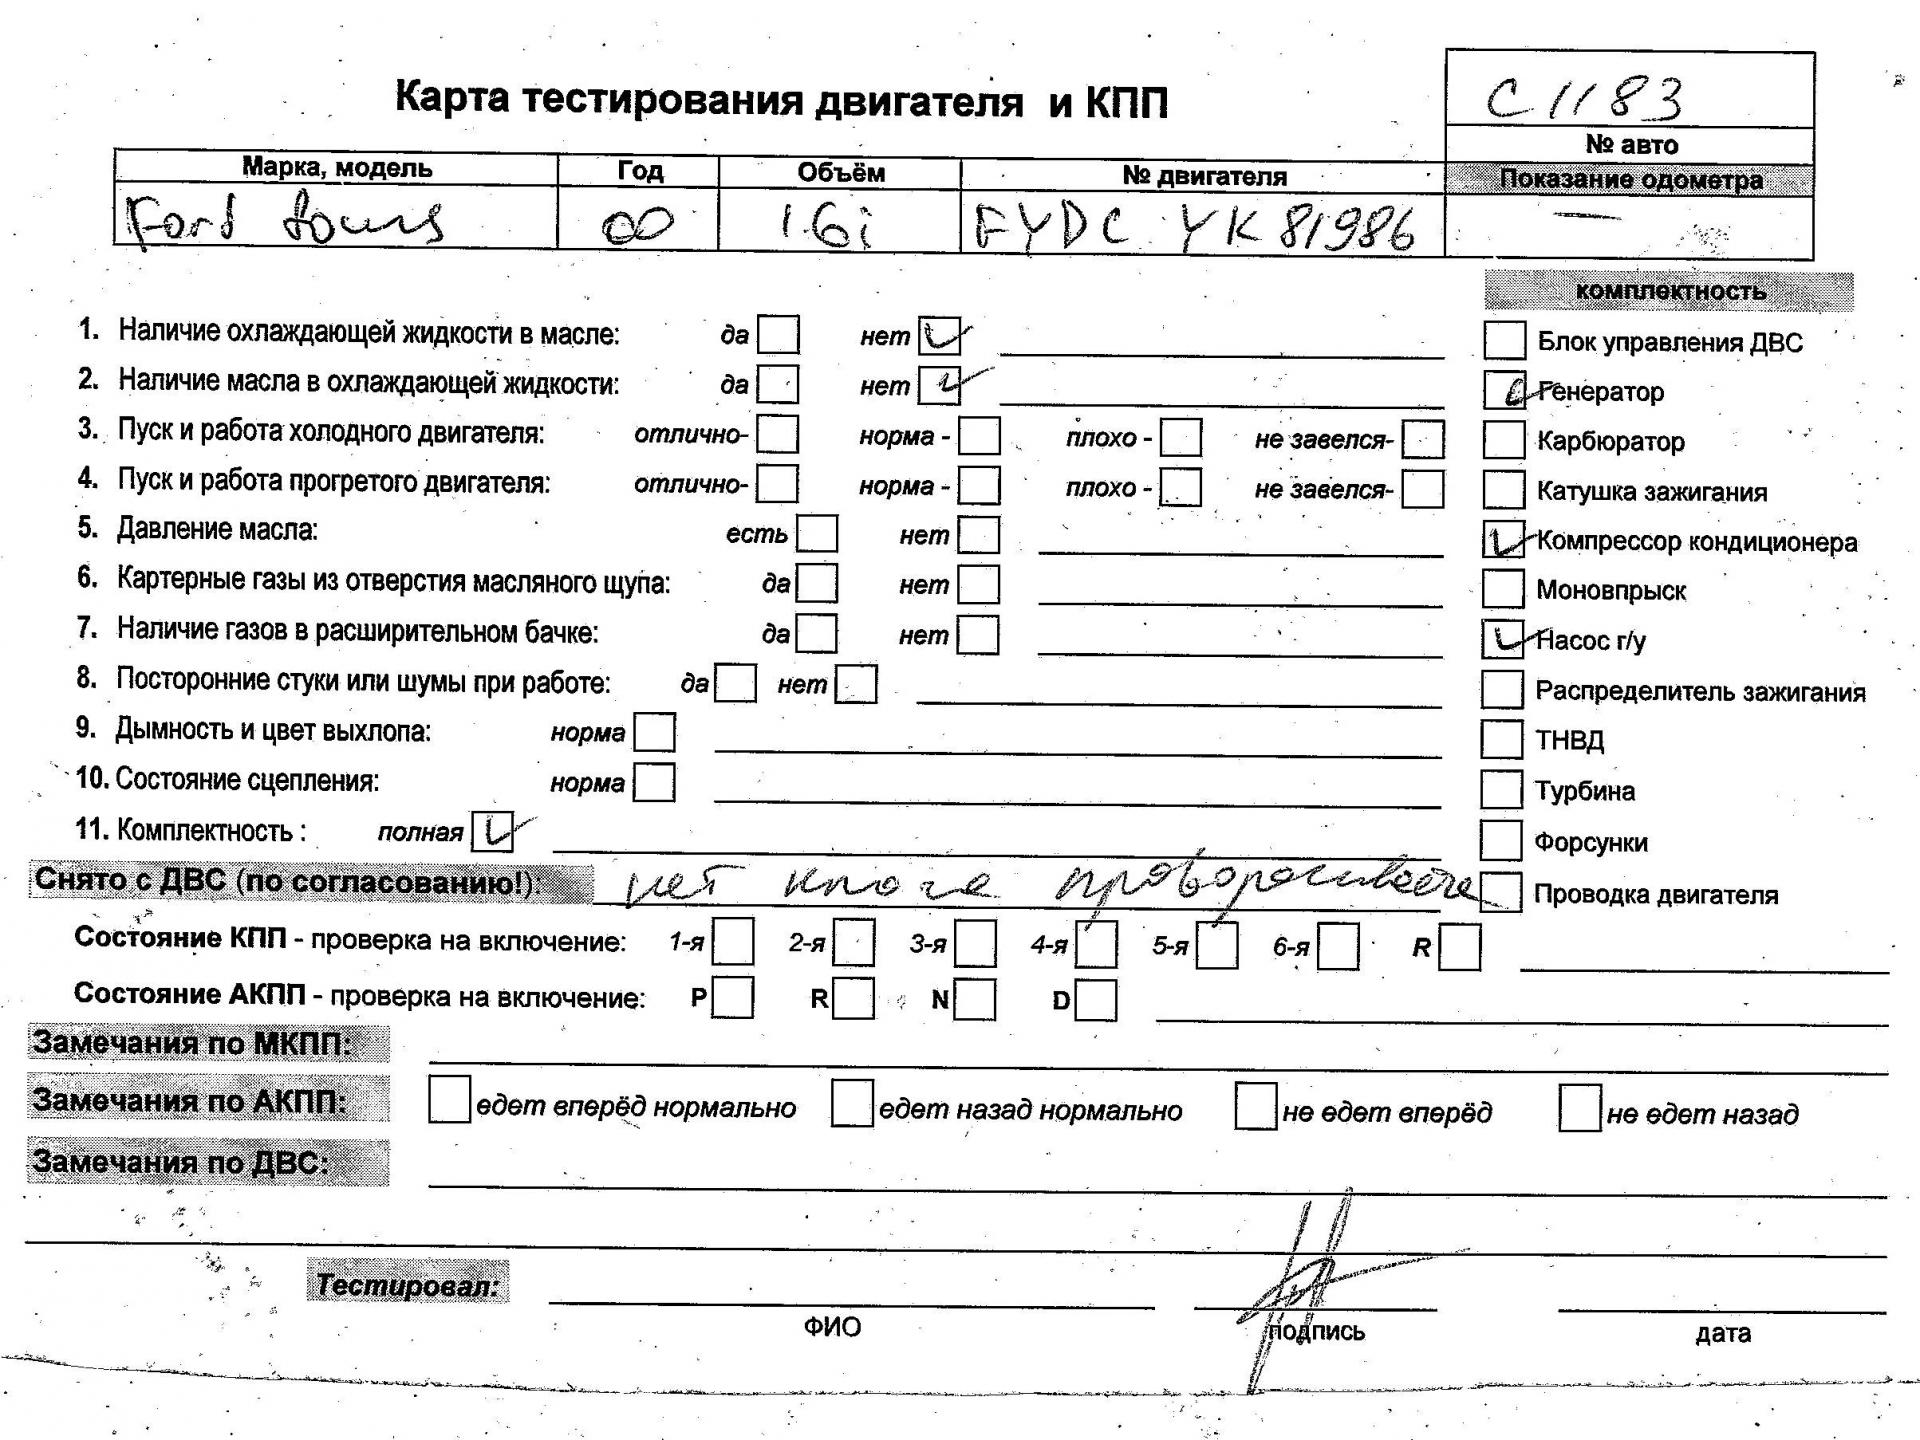 С1183
Карта тестирования двигателя и КПП
№ авто
Марка, модель Год Объём № двигателя Показание одометра
Ford 00 1.6i FYDC YK81986 —
комплектность
1. Наличие охлаждающей жидкости в масле: да нет
Блок управления ДВС
2. Наличие масла в охлаждающей жидкости: да нет
Генератор
3. Пуск и работа холодного двигателя: отлично- норма - плохо - не завелся-
Карбюратор
4. Пуск и работа прогретого двигателя: отлично- норма - плохо - не завелся-
Катушка зажигания
5. Давление масла: есть нет
Компрессор кондиционера
6. Картерные газы из отверстия масляного щупа: да нет
Моновпрыск
7. Наличие газов в расширительном бачке: да нет
Насос г/у
8. Посторонние стуки или шумы при работе: да нет
Распределитель зажигания
9. Дымность и цвет выхлопа: норма
ТНВД
10. Состояние сцепления: норма
Турбина
11. Комплектность : полная
Форсунки
Снято с ДВС (по согласованию!): нет
Проводка двигателя
Состояние КПП - проверка на включение: 1-я 2-я 3-я 4-я 5-я 6-я R
Состояние АКПП - проверка на включение: P R N D
Замечания по МКПП:
Замечания по АКПП: едет вперёд нормально едет назад нормально не едет вперёд не едет назад
Замечания по ДВС:
Тестировал:
ФИО подпись дата